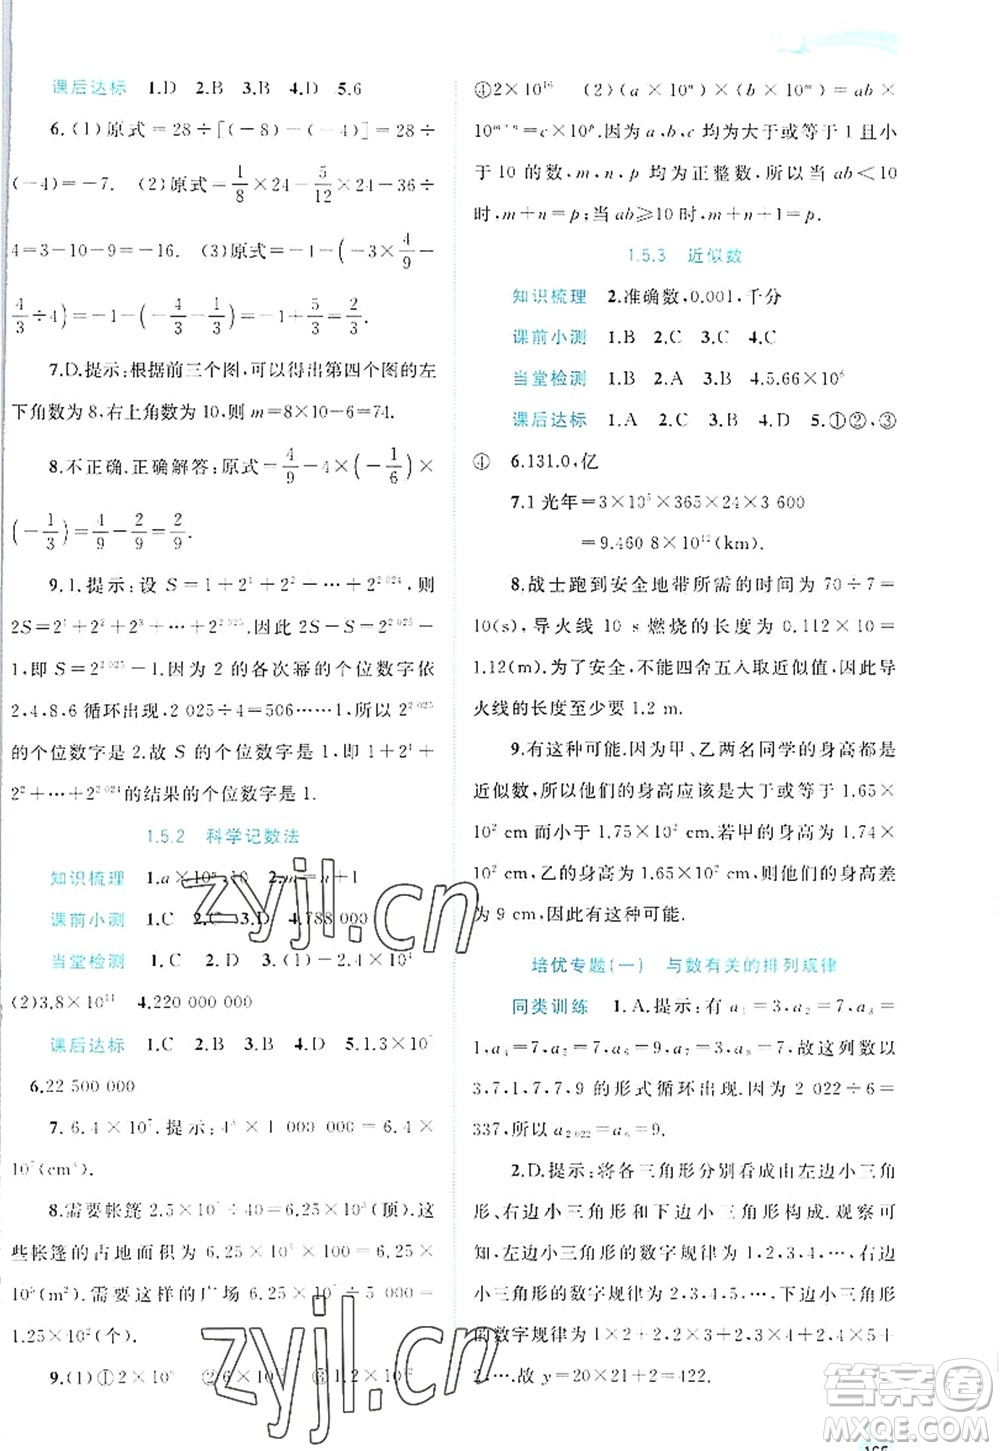 课后达标 1.D 2.B 3.B 4.D 5.6
6.(1)原式=28÷[(-8)-(-4)]=28÷
(-4)=-7. (2)原式=1/8×24-5/12×24-36÷
4=3-10-9=-16. (3)原式=-1-(-3×4/9-
4/3÷4)=-1-(-4/3-1/3)=2/3.
7.D.提示:根据前三个图,可以得出第四个图的左
下角数为8,右上角数为10,则m=8×10-6=74.
8.不正确.正确解答:原式=4/9-4/3×(-1/6)×
(-1/3)=4/9-2/9=2/9.
9.1.提示:设 S=1+2¹+2²+…+2^2 024,则
2S=2¹+2²+2³+…+2^2 025.因此 2S-S=2^2 025-
1,即 S=2^2 025-1.因为 2 的各次幂的个位数字依
2,4,8,6 循环出现,2 025÷4=506……1,所以 2^2 025
的个位数字是 2.故 S 的个位数字是 1,即 1+2¹+
2²+…+2^2 024的结果的个位数字是 1.
1.5.2 科学记数法
知识梳理 1.a×10ⁿ,10 2.m=n+1
课前小测 1.C 2.C 3.D 4.788 000
当堂检测 1.C 2.D 3.(1)-2.4×
(2)3.8×10¹¹ 4.220 000 000
课后达标 1.C 2.B 3.B 4.D 5.1.3×
6.22 500 000
7.6.4×10⁷.提示:
(cm³).
8.需要帐篷 2.5×÷40=(顶),这
些帐篷的占地面积为 6.25××=6.25×
(m²),需要这样的广场 6.25×÷5 000=
1.25×10²(个).
9.(1)①2× ②6× ③1.2×
④2×10¹⁶ (2)(a×10ᵐ)×(b×10ⁿ)=ab×
10ᵐ⁺ⁿ=c×10ᵖ.因为 a,b,c 均为大于或等于 1 且小
于 10 的数,m,n,p 均为正整数,所以当 ab<10
时,m+n=p;当 ab≥10 时,m+n+1=p.
1.5.3 近似数
知识梳理 2.准确数,0.001,千分
课前小测 1.B 2.C 3.C 4.C
当堂检测 1.B 2.A 3.B 4.5.66×10⁶
课后达标 1.A 2.C 3.B 4.D 5.①②,③
④ 6.131.0,亿
7.1 光年=3×10⁵×365×24×3 600
=9.460 8×10¹²(km).
8.战士跑到安全地带所需的时间为 70÷7=
10(s),导火线 10 s 燃烧的长度为 0.112×10=
1.12(m).为了安全,不能四舍五入取近似值,因此导
火线的长度至少要 1.2 m.
9.有这种可能.因为甲、乙两名同学的身高都是
近似数,所以他们的身高应该是大于或等于 1.65×
10² cm 而小于 1.75×10² cm.若甲的身高为 1.74×
10² cm,乙的身高为 1.65×10² cm,则他们的身高差
为 9 cm,因此有这种可能.
培优专题(一) 与数有关的排列规律
同类训练 1.A.提示:有 a₁=3,a₂=7,a₃=
1,a₄=7,a₅=7,a₆=9,a₇=3,a₈=7,故这列数以
3,7,1,7,7,9 的形式循环出现.因为 2 022÷6=
337,所以 a₂ ₀₂₂=a₆=9.
2.D.提示:将各三角形分别看成由左边小三角
形、右边小三角形和下边小三角形构成.观察可
知,左边小三角形的数字规律为 1,2,3,…,右边小
三角形的数字规律为 2,3,4,5,…,下边小三角形
的数字规律为 1×2+2,2×3+2,3×4+2,4×5+
2,….故 y=20×21+2=422.
zyjl.cn
zyjl.cn
答案圈
MXQE.COM